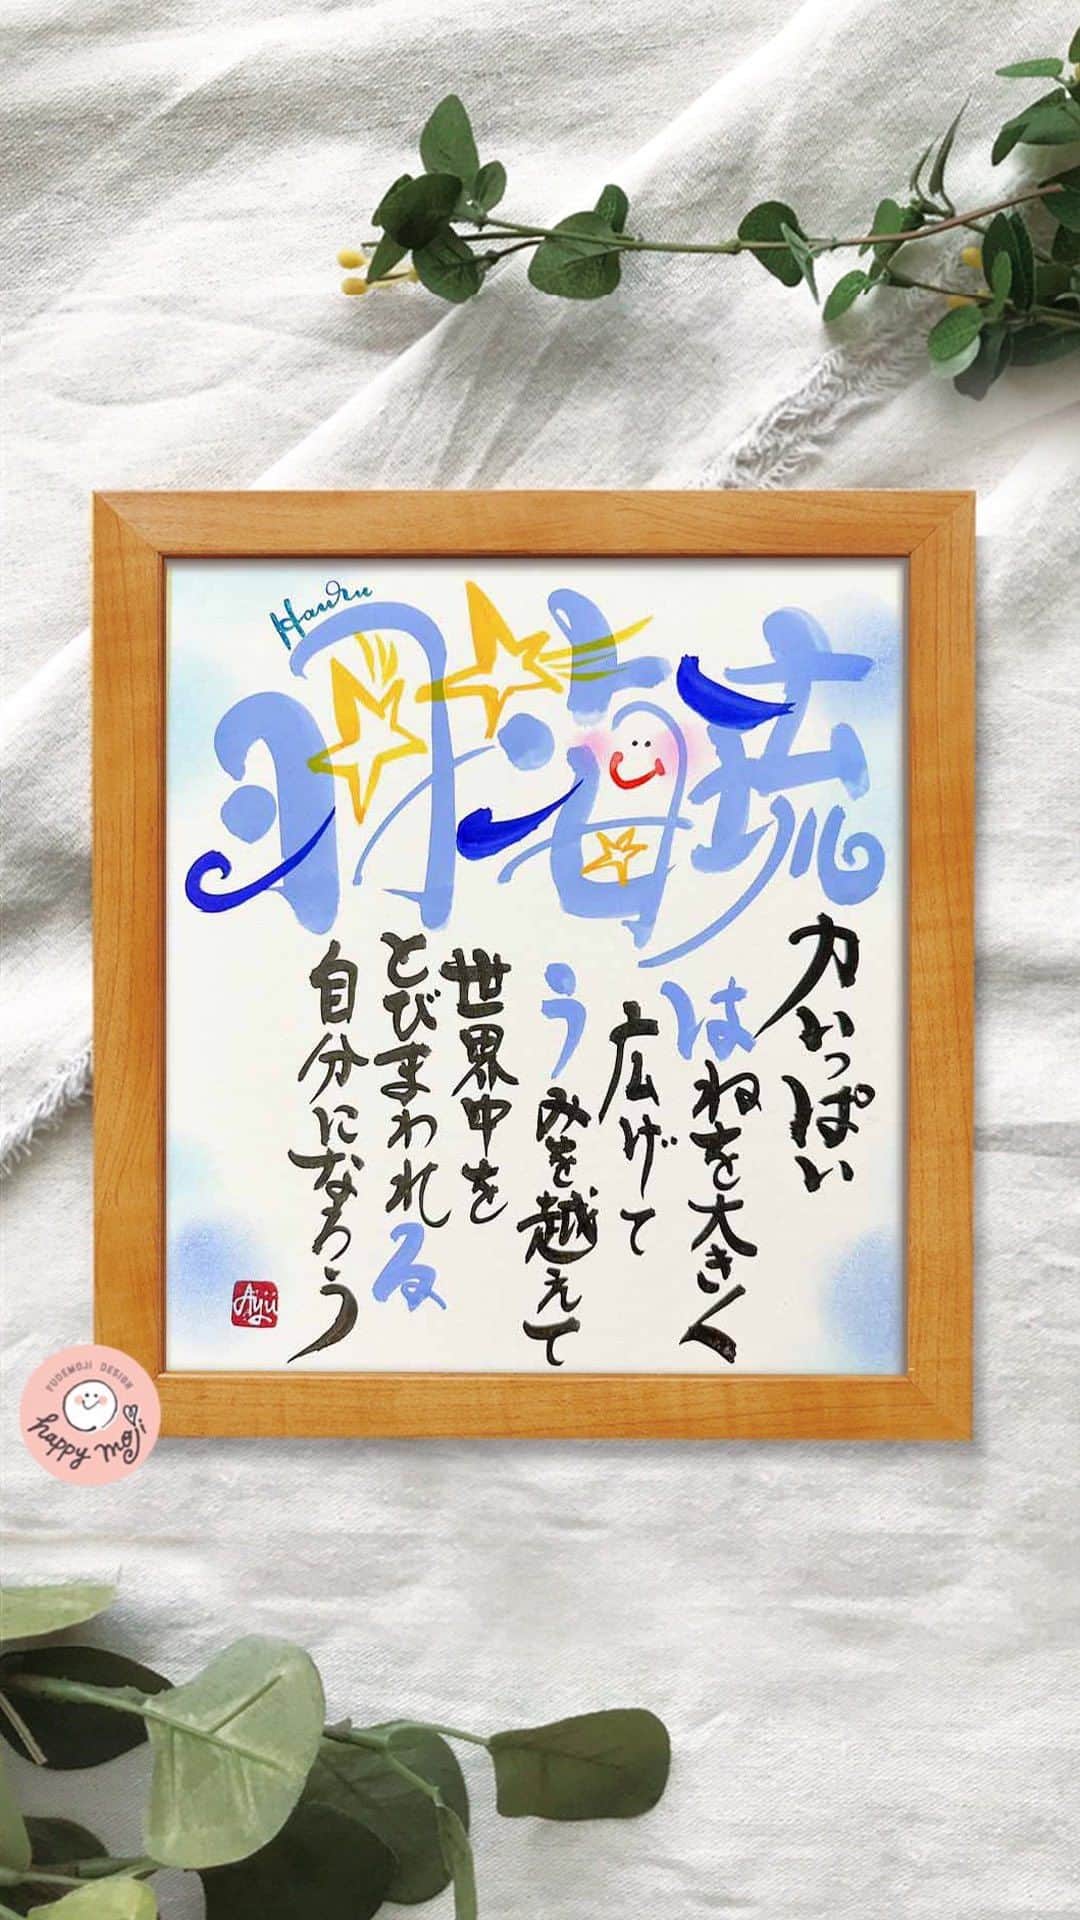 Hauru
羽海琉
力いっぱい
はねを大きく
広げて
うみを越えて
世界中を
とびまわれる
自分になろう
Ayu
FUDEMOJI DESIGN
happy moji